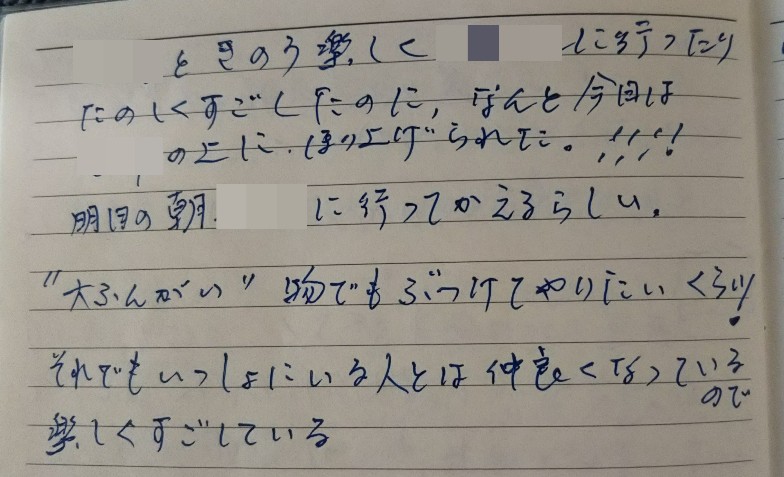 ときのう楽しく に行ったり
たのしくすごしたのに、なんと今日は
の上に、ほり上げられた。!!!!
明日の朝 に行ってかえるらしい。
"大ふんがい" 物でもぶつけてやりたいくらい!
それでもいっしょにいる人とは仲良くなっている
ので
楽しくすごしている